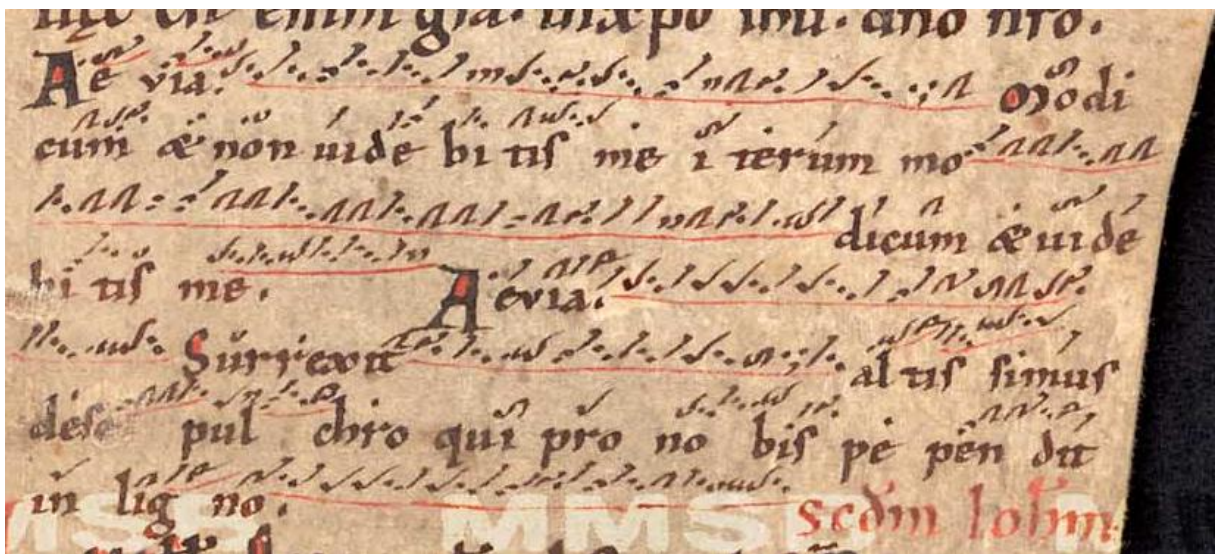 enim gra. in xpo ihu. dno nro.
Aevia. Modi
cum & non uide bi tis me i terum mo
dicum & uide
bi tis me. Aevia.
Surrexit al tis simus
dese pul chro qui pro no bis pe pen dit
in lig no. scdm Iohm
MMS